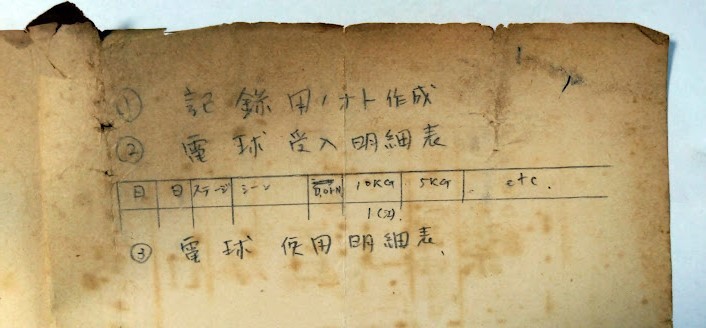 ① 記録用ノオト作成
② 電球受入明細表
日 日 ステージ シーン 10KG 5KG etc.
1(コ).
③ 電球使用明細表